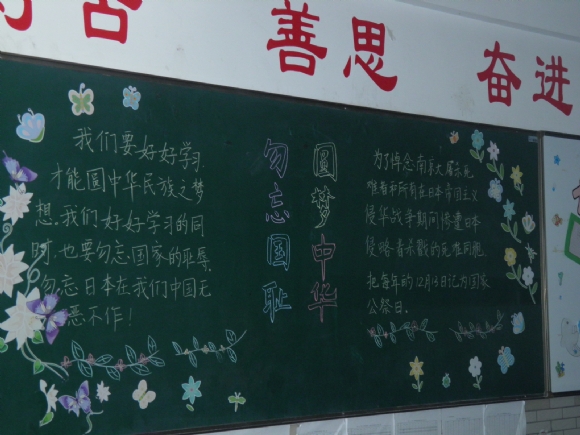 善思
奋进
我们要好好学习
才能圆中华民族之梦
想,我们好好学习的同
时,也要勿忘国家的耻辱,
勿忘日本在我们中国无
恶不作!
勿忘国耻
圆梦中华
为了悼念南京大屠杀死
难者和所有在日本帝国主义
侵华战争期间惨遭日本
侵略者杀戮的死难同胞,
把每年的12月13日记为国家
公祭日。